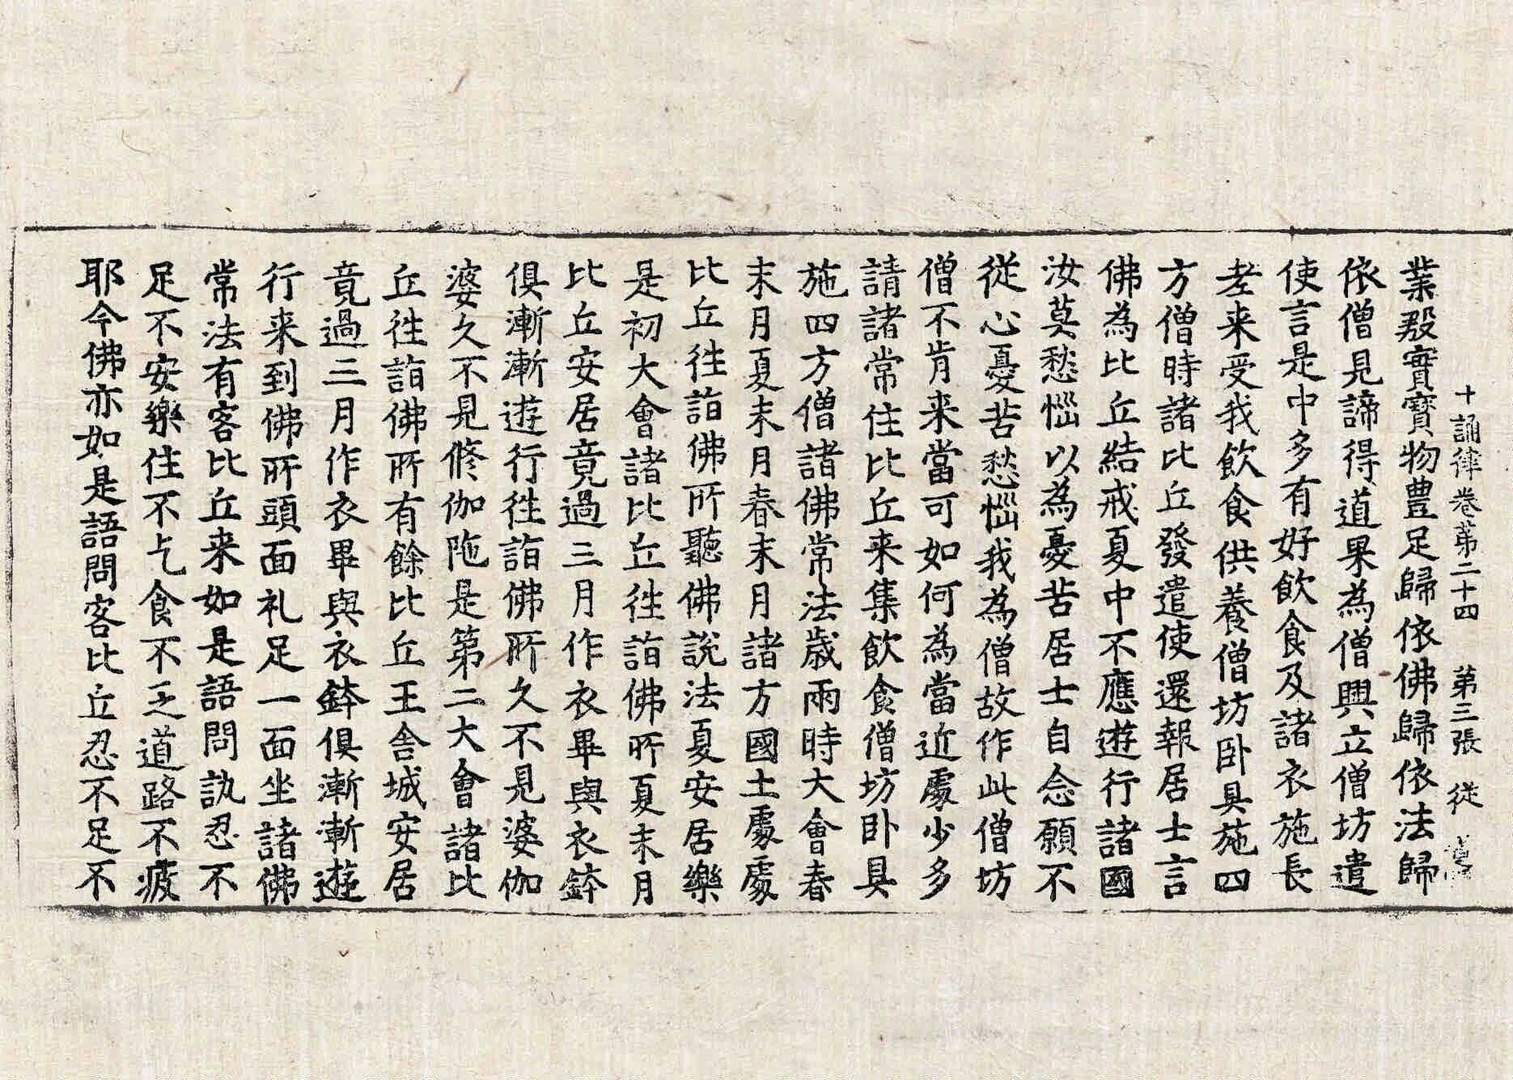 十誦律卷苐二十四　第三張　從
業殺實寶物豊足歸依佛歸依法歸
依僧見諦得道果為僧興立僧坊遣
使言是中多有好飲食及諸衣施長
老来受我飲食供養僧坊卧具施四
方僧時諸比丘發遣使還報居士言
佛為比丘結戒夏中不應遊行諸國
汝莫愁惱以為憂苦居士自念願不
從心憂苦愁惱我為僧故作此僧坊
僧不肯来當可如何為當近處少多
請諸常住比丘来集飲食僧坊卧具
施四方僧諸佛常法歳兩時大會春
末月夏末月春末月諸方國土處處
比丘徃詣佛所聽佛說法夏安居樂
是初大會諸比丘徃詣佛所夏末月
比丘安居竟過三月作衣畢與衣鉢
俱漸漸遊行徃詣佛所久不見婆伽
婆久不見脩伽陁是第二大會諸比
丘徃詣佛所有餘比丘王舍城安居
竟過三月作衣畢與衣鉢俱漸漸遊
行来到佛所頭面礼足一面坐諸佛
常法有客比丘来如是語問訊忍不
足不安樂住不乞食不乏道路不疲
耶今佛亦如是語問客比丘忍不足不